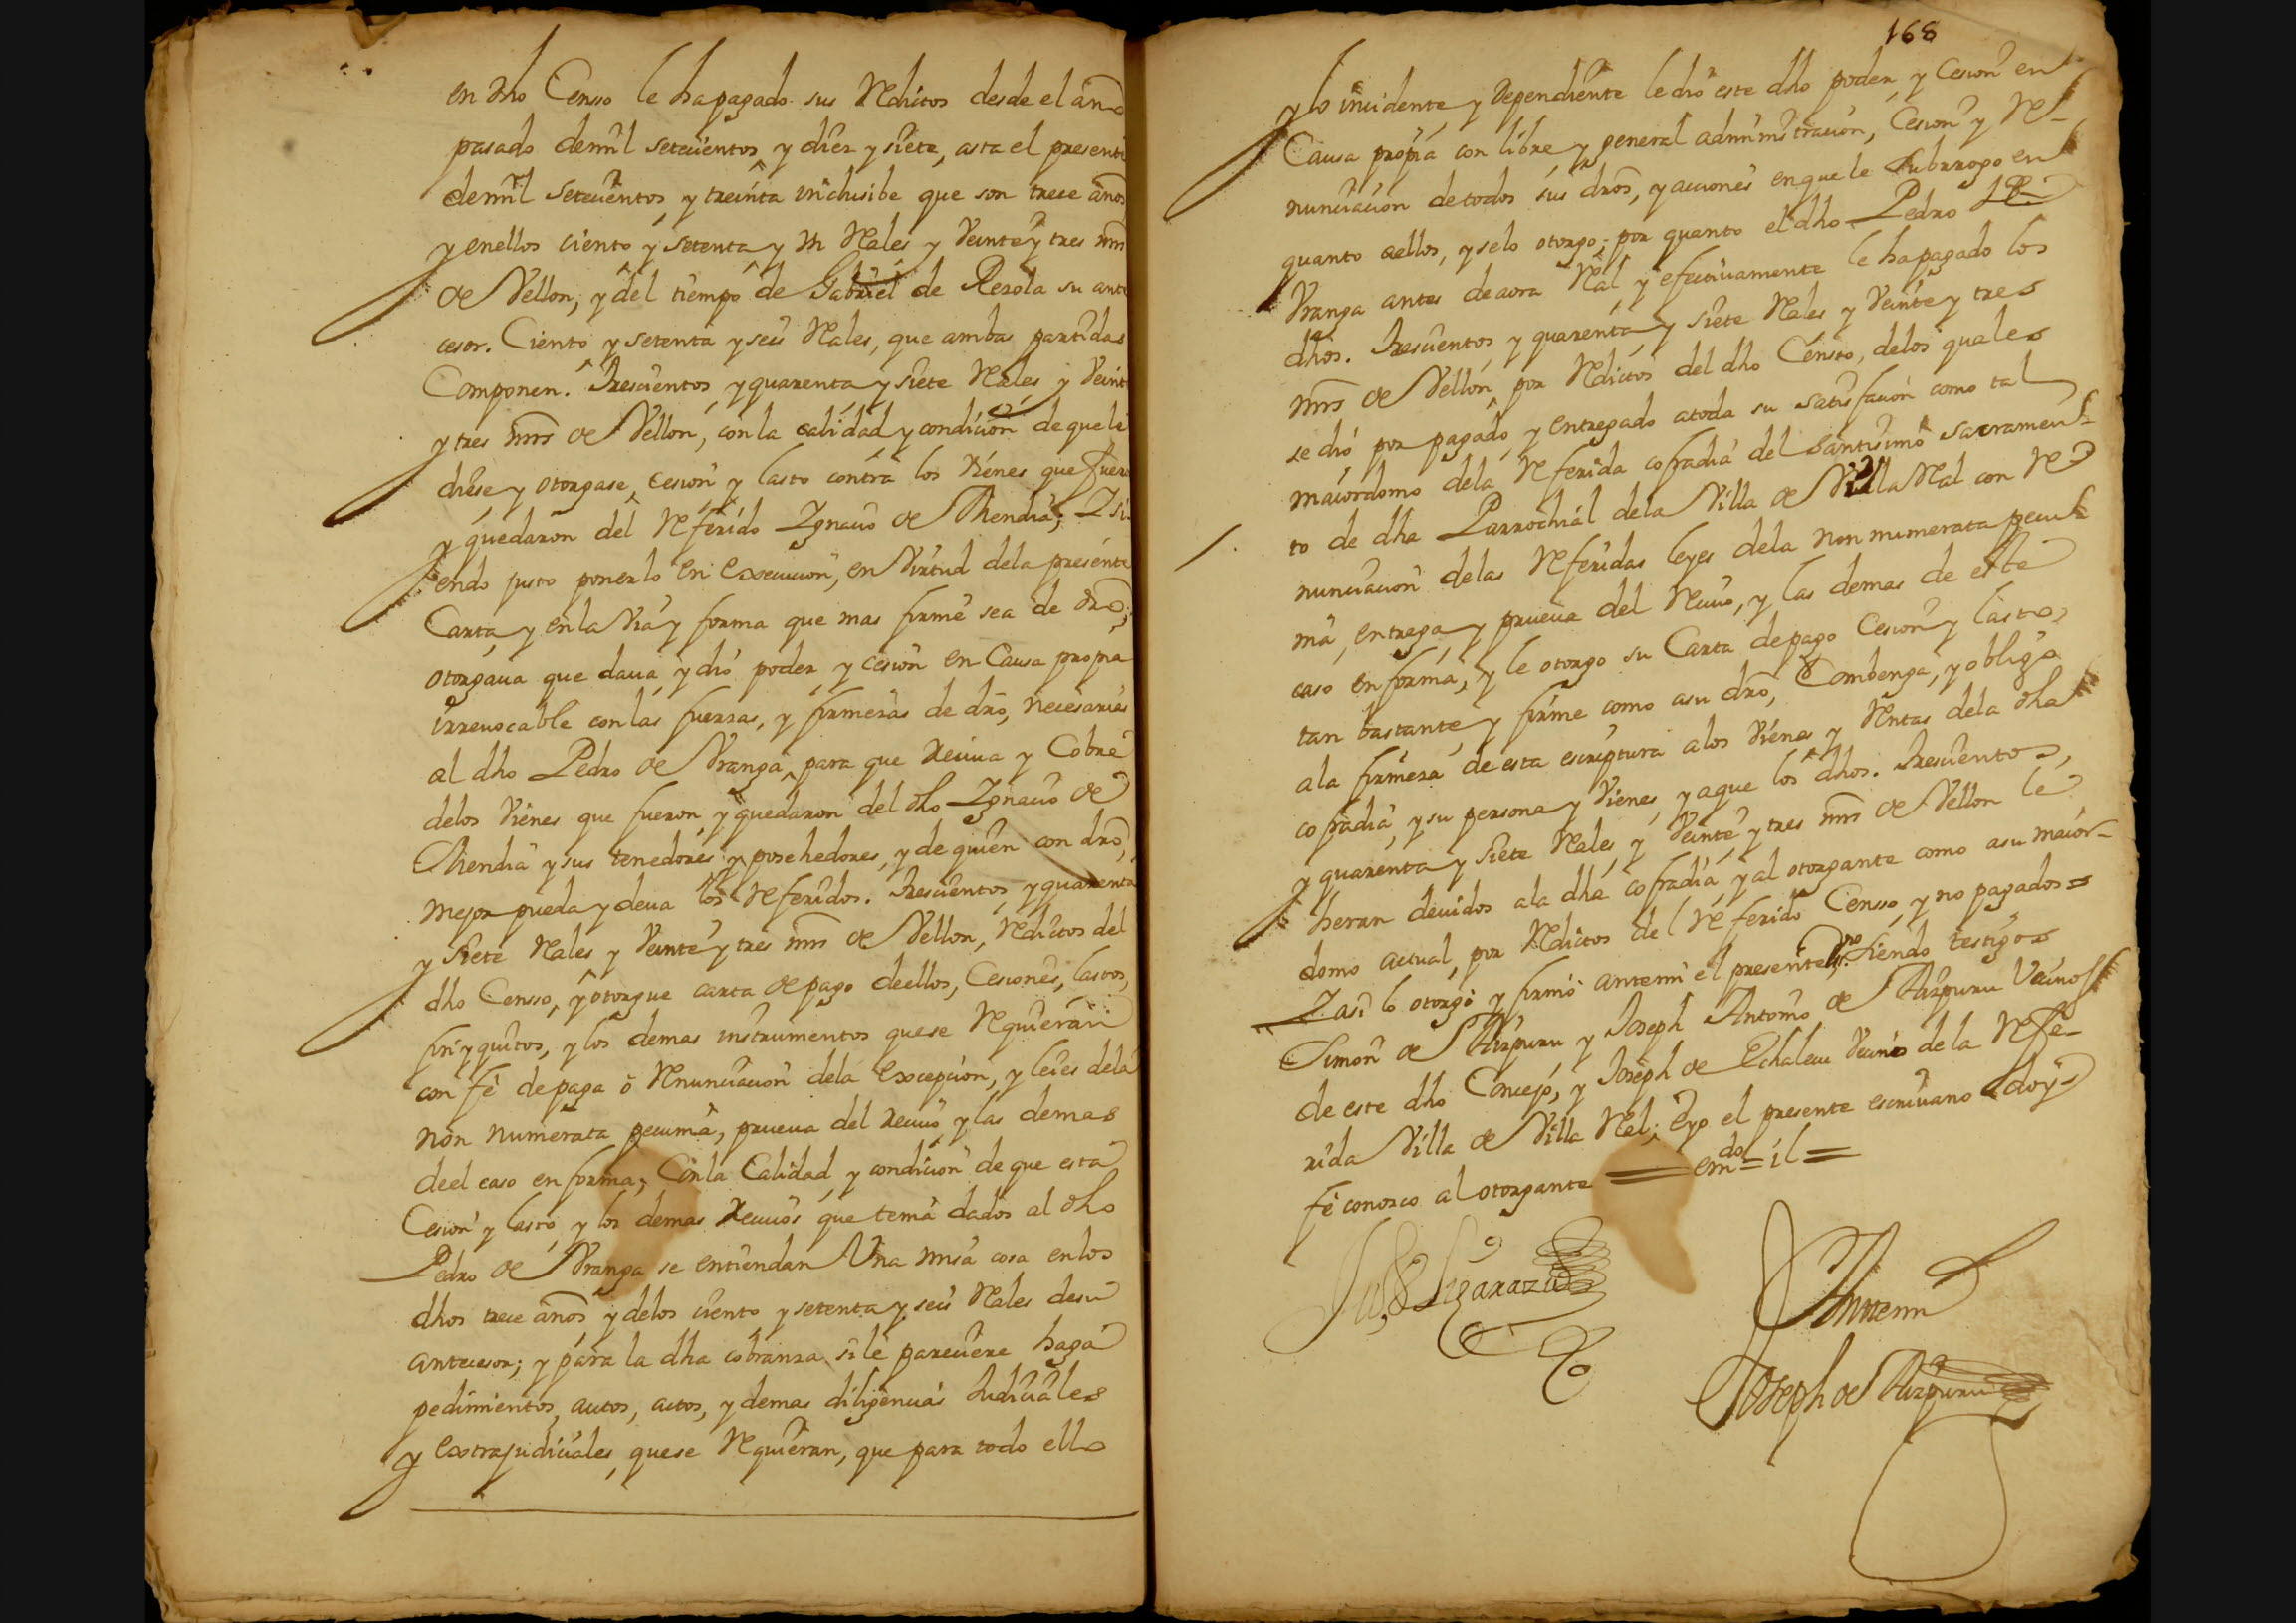 en dho Censo le ha pagado sus Reditos desde el año
pasado de mil setecientos y diez y siete, asta el presente
de mil setecientos y treinta inclusibe que son trece años
y en ellos ciento y setenta y un Reales y Veinte y tres mrs
de Vellon, y del tiempo de Gabriel de Rezola su ante
cesor. Ciento y setenta y seis Reales, que ambas partidas
Componen. Trescientos y quarenta y siete Reales y Veinte
y tres mrs de Vellon, con la calidad y condicion de que le
diese y otorgase cesion y lasto contra los Vienes que fueron
y quedaron del Referido Ignacio de Mendia; I si
endo justo ponerlo en execucion, en Virtud de la presente
Carta, y en la Via y forma que mas firme sea de dro,
otorgaua que daua y dió poder y cesion en Causa propia
irreuocable con las fuerzas, y firmezas de dro, necesarias
al dho Pedro de Vranga para que Reciua y Cobre
de los Vienes que fueron y quedaron del dho Ignacio de
Mendia y sus tenedores y posehedores, y de quien con dro,
mejor pueda y deua los Referidos. Trescientos y quarenta
y siete Reales y Veinte y tres mrs de Vellon, Reditos del
dho Censso, y otorgue carta de pago de ellos, Cesiones, lastos,
finiquitos, y los demas instrumentos que se Requieran
con fé de paga ó Renunciacion de la excepcion, y leies de la
non numerata pecunia, prueua del Reciuo y las demas
de el caso en forma; Con la Calidad y condicion de que esta
Cesion y lasto, y los demas Reciuos que tenia dados al dho
Pedro de Vranga se entiendan Vna misma cosa en los
dhos trece años y de los ciento y setenta y seis Reales de su
antecesor; y para la dha cobranza si le pareciere haga
pedimientos, autos, actos, y demas diligencias Judiciales
y extrajudiciales, que se Requieran, que para todo ello
168
y lo incidente y dependiente le dio este dho poder y Cesion en
Causa propia con libre y general administracion, Cesion y Re-
nunciacion de todos sus dros, y acciones en que le Subrrogo en
quanto a ellos, y se lo otorgo; por quanto el dho Pedro de
Vranga antes de aora Real y efectiuamente le ha pagado los
dhos. Trescientos y quarenta y siete Reales y Veinte y tres
mrs de Vellon por Reditos del dho Censso, de los quales
se dió por pagado, y entregado a toda su satisfacion como tal
maiordomo de la Referida cofradia del santisimo sacramen-
to de dha Parrochial de la Villa de Villa Real con Re
nunciacion de las Referidas leyes de la non numerata pecu-
nia, entrega, y prueua del Reciuo, y las demas de este
caso en forma, y le otorgo su Carta de pago Cesion y lasto,
tan bastante y firme como a su dro, Combenga, y obligo
a la firmeza de esta escriptura a los Vienes y Rentas de la dha
cofradia, y su persona y Vienes, y a que los dhos. Trescientos,
y quarenta y siete Reales y Veinte y tres mrs de Vellon le
heran deuidos a la dha cofradia y al otorgante como a su maior-
domo actual, por Reditos del Referido Censso, y no pagados
I asi lo otorgó y firmó ante mi el presente Ssno siendo testigos
Simon de Aizpuru y Joseph Antonio de Aizpuru Vecinos
de este dho Concejo, y Joseph de Echalecu Vecino de la Refe-
rida Villa de Villa Real; E yo el presente escriuano doy
fé conozco al otorgante = emdo = il =
Lizarazu
Ante mi
Joseph de Aizpuru